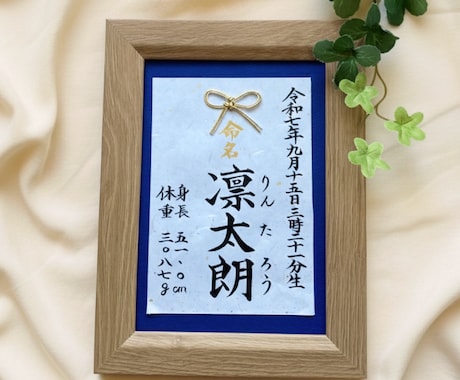 令和七年九月十五日三時二十一分生
命名
りんたろう
凛太朗
身長 五一、〇cm
体重 三〇八七g